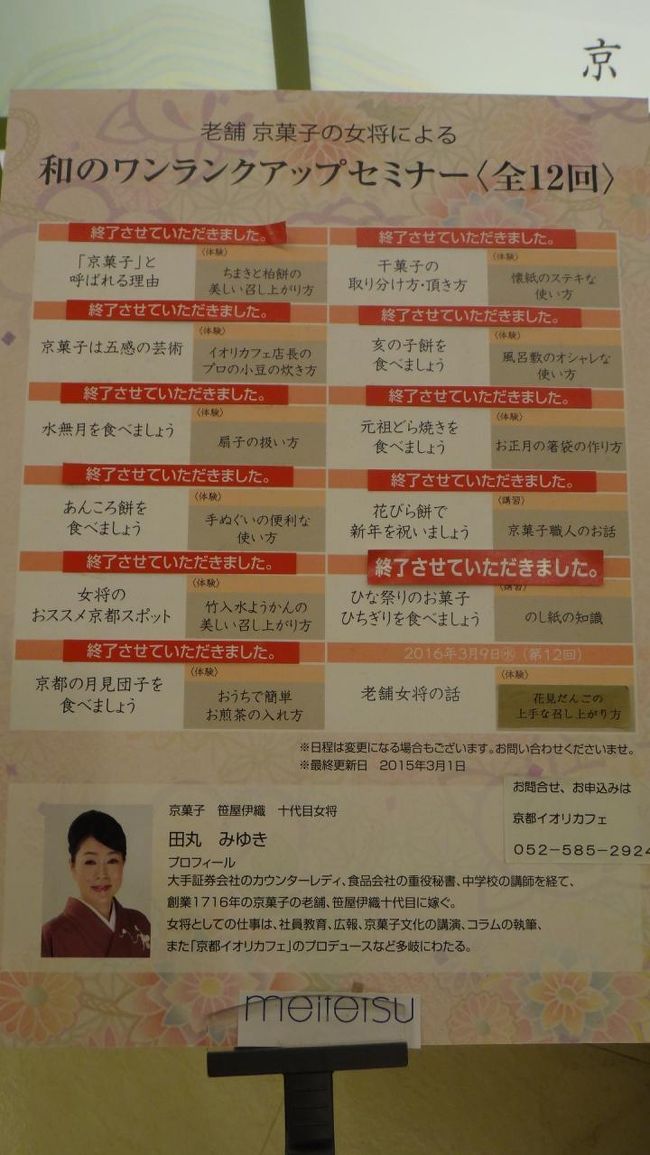 京
老舗 京菓子の女将による
和のワンランクアップセミナー〈全12回〉
終了させていただきました。
「京菓子」と
呼ばれる理由
〈体験〉
ちまきと柏餅の
美しい召し上がり方
終了させていただきました。
京菓子は五感の芸術
〈体験〉
イオリカフェ店長の
プロの小豆の炊き方
終了させていただきました。
水無月を食べましょう
〈体験〉
扇子の扱い方
終了させていただきました。
あんころ餅を
食べましょう
〈体験〉
手ぬぐいの便利な
使い方
終了させていただきました。
女将の
おススメ京都スポット
〈体験〉
竹入水ようかんの
美しい召し上がり方
終了させていただきました。
京都の月見団子を
食べましょう
〈体験〉
おうちで簡単
お煎茶の入れ方
終了させていただきました。
干菓子の
取り分け方・頂き方
〈体験〉
懐紙のステキな
使い方
終了させていただきました。
亥の子餅を
食べましょう
〈体験〉
風呂敷のオシャレな
使い方
終了させていただきました。
元祖どら焼きを
食べましょう
〈体験〉
お正月の箸袋の作り方
終了させていただきました。
花びら餅で
新年を祝いましょう
〈講習〉
京菓子職人のお話
終了させていただきました。
ひな祭りのお菓子
ひちぎりを食べましょう
〈講習〉
のし紙の知識
2016年3月9日㈬（第12回）
老舗女将の話
〈体験〉
花見だんごの
上手な召し上がり方
※日程は変更になる場合もございます。お問い合わせくださいませ。
※最終更新日　2015年3月1日
お問合せ、お申込みは
京都イオリカフェ
052-585-2924
京菓子　笹屋伊織　十代目女将
田丸　みゆき
プロフィール
大手証券会社のカウンターレディ、食品会社の重役秘書、中学校の講師を経て、
創業1716年の京菓子の老舗、笹屋伊織十代目に嫁ぐ。
女将としての仕事は、社員教育、広報、京菓子文化の講演、コラムの執筆、
また「京都イオリカフェ」のプロデュースなど多岐にわたる。
meitetsu